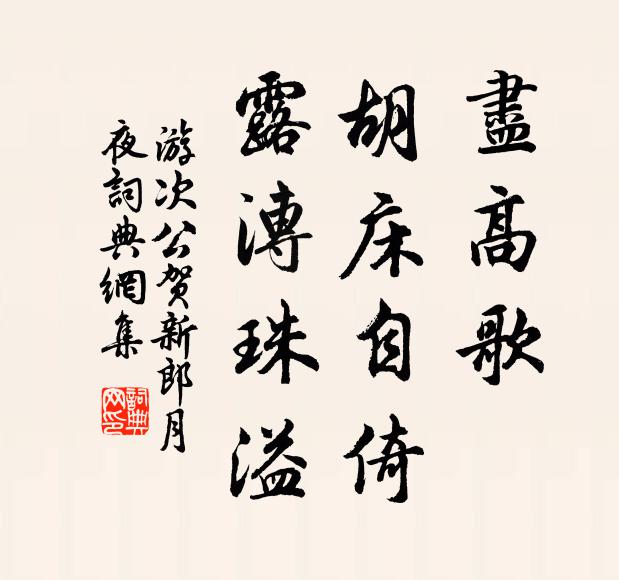 盡高歌
胡床自倚
露漙珠溢
游次公贺新郎月
夜詞典網集
詞典
网印